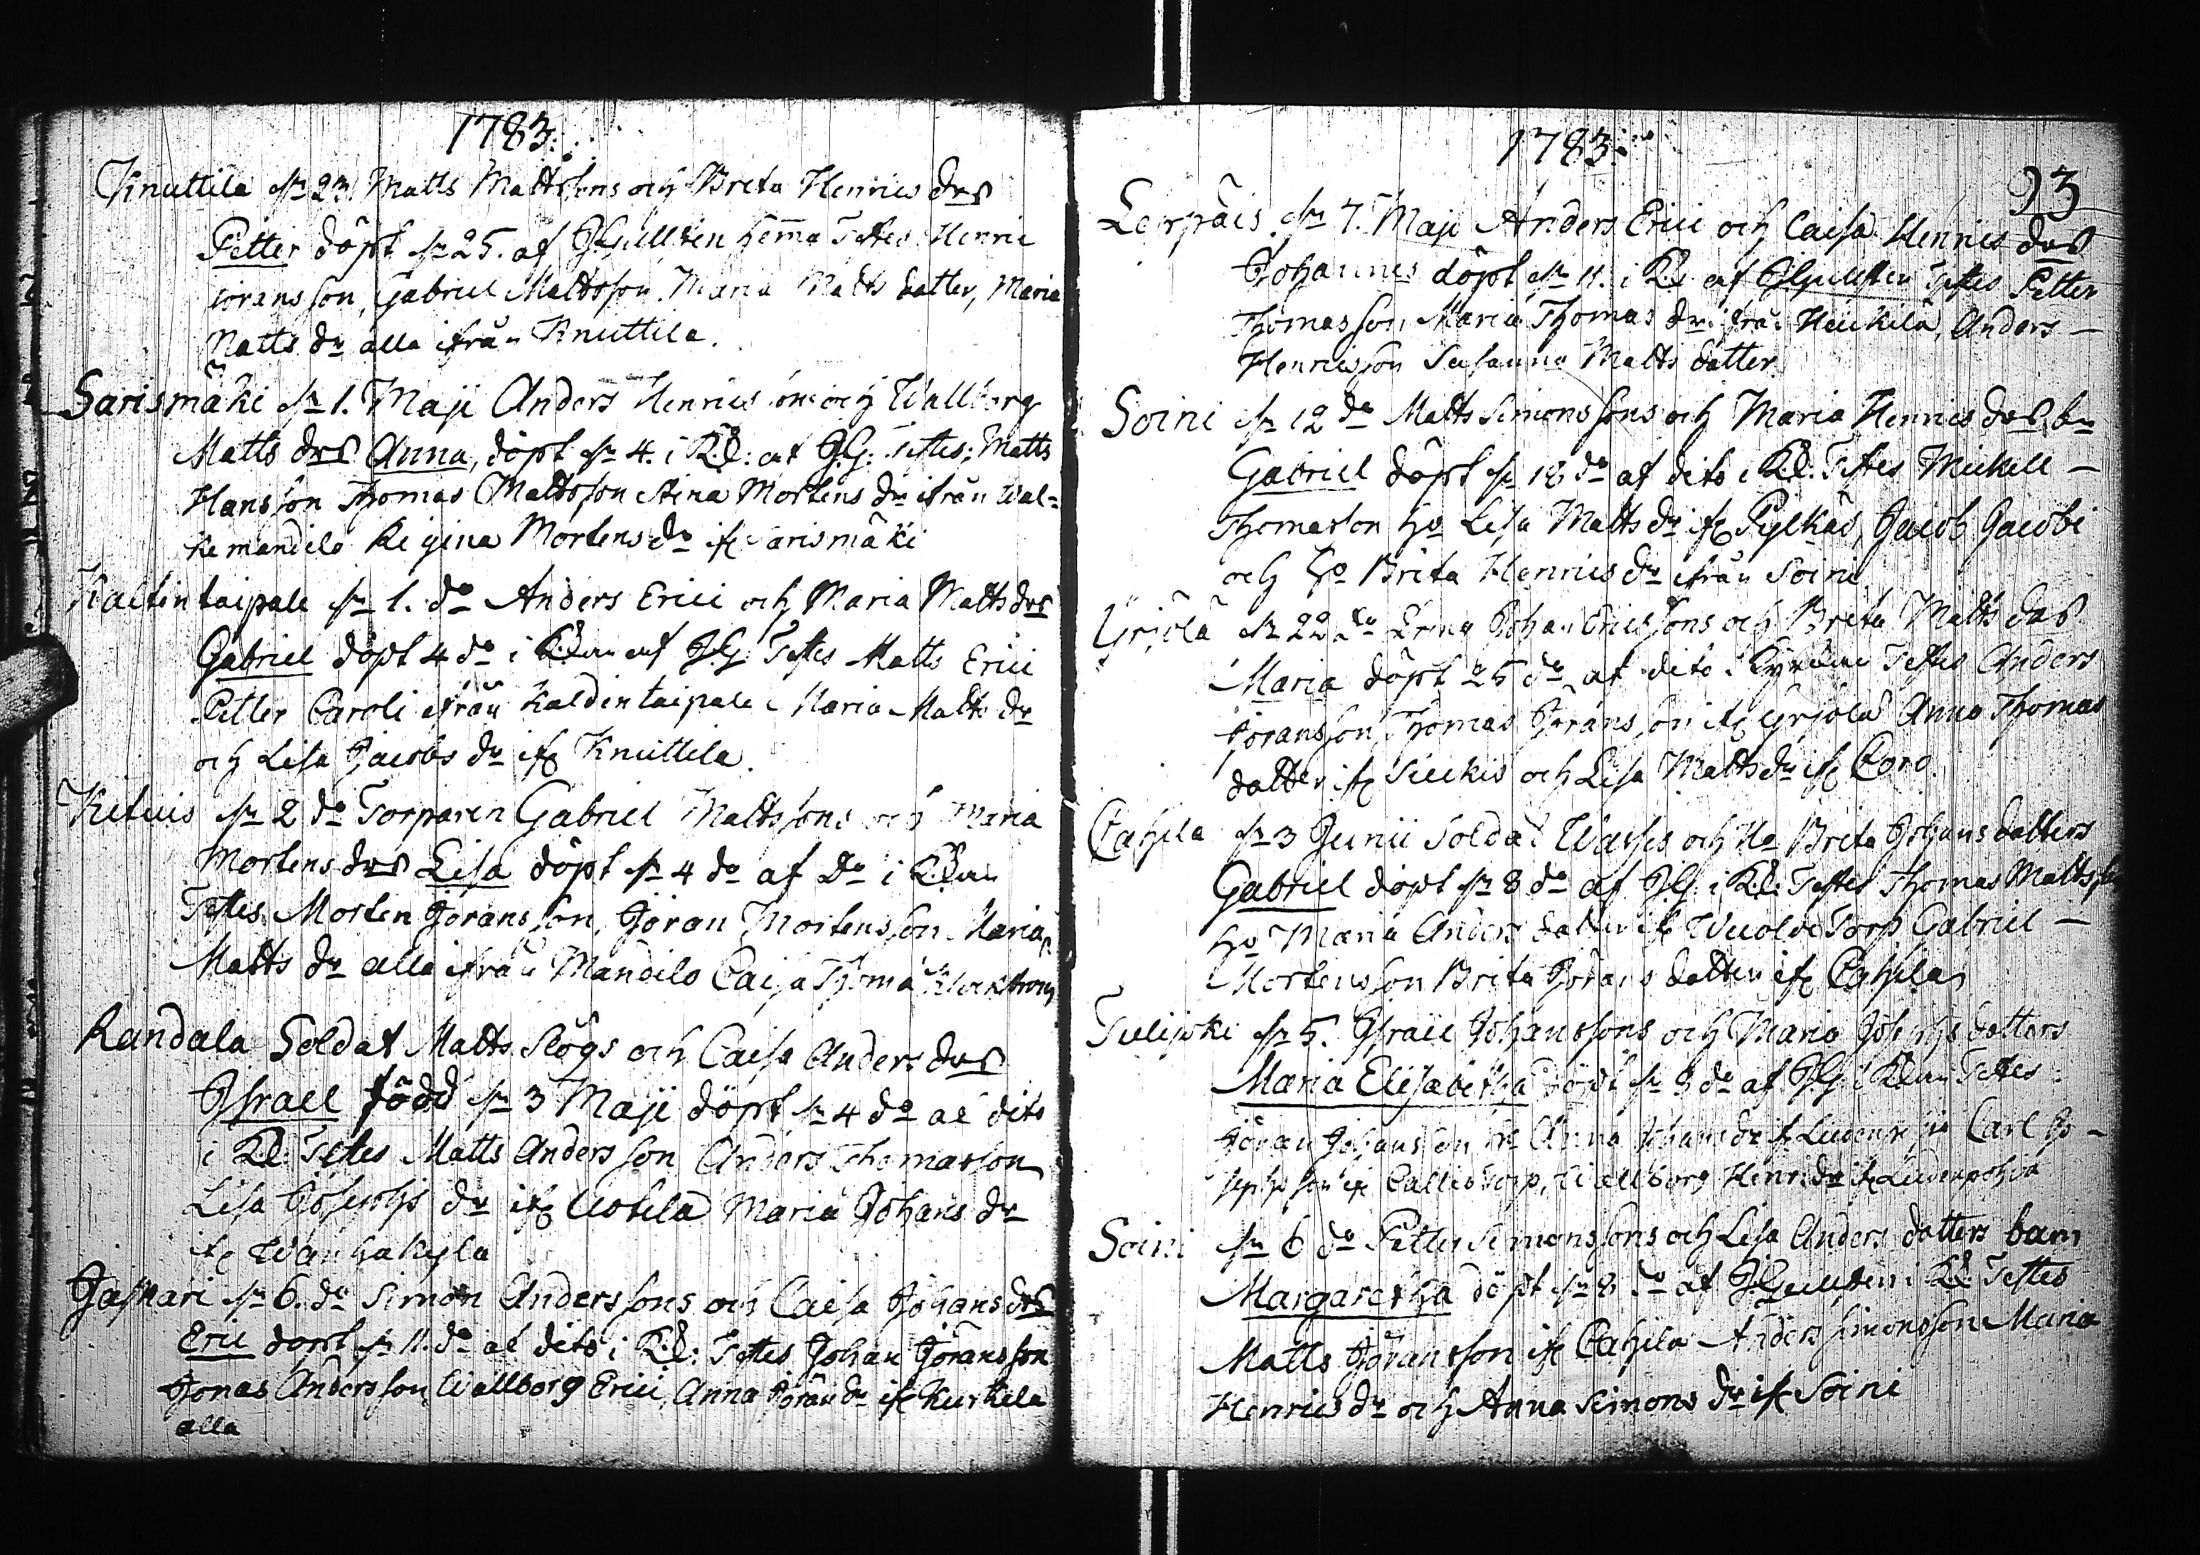 1783.
Knuttila d 23 Matts Mattssons och Breta Henrics drs
Petter döpt d 25. af JGullsten hema Testes Henric
Göransson, Gabriel Mattsson. Maria Matts dotter, Maria
Matts dr alla ifrån Knuttila.
Sarismäki d 1. Maji Anders Henricsons och Wallborg
Matts drs Anna, döpt d 4. i K: af J.G: Testes; Matts
Hansson Thomas Mattsson Stina Mortens dr ifrån Wal=
kemandilo Regina Mortens dr if Sarismäki
Kaltintaipale d 1. do Anders Erici och Maria Matts drs
Gabriel döpt 4 do i af JG Testes Matts Erici
Petter Caroli ifrån Kaldintaipale Maria Matts dr
och Lisa Jacobs dr if Knuttila.
d 2 do Torparen Gabriel Mattssons och Maria
Mortens drs Lisa döpt d 4 do af do i
Testes Morten Göransson, Göran Mortensson Maria
Matts dr alla ifrån Mandilo Caisa Thomä
Randala Soldat Matts Slögs och Caisa Anders drs
Israel född d 3 Maji döpt d 4 do af dito
i K: Testes Matts Andersson Anders Thomasson
Lisa Josephs dr if Uotila Maria Johans dr
if Wanhakyla
Jaskari d 6. do Simon Anderssons och Caisa Johans drs
Eric döpt d 11. do af dito i K: Testes Johan Göransson
Jonas Andersson, Wallborg Erici, Anna Göran dr if Kurkela
alla
1783.
93
d 7. Maji Anders Erici och Caisa Henrics drs
Johannes döpt d 11. i K af JGullsten Testes Petter
Thomasson, Maria Thomas dr ifrån Heickilä, Anders —
Henricsson Susanna Matts dotter
Soini d 12 do Matts Simonssons och Maria Henrics drs bn
Gabriel döpt d 18 do af dito i K: Testes Mickell —
Thomasson hu Lisa Matts dr if Pylkäs, Jacob Jacobi
och Brita Henrics dr ifrån Soini
Yrjölä d 22 do Johan Ericssons och Breta Matts drs
Maria döpt 25 do af dito i Kyrckan Testes Anders
Göransson, Thomas Göransson if Yrjölä Anna Thomas
dotter if och Lisa Matts dr if
Cahila d 3 Junii Soldat och Hu Breta Johans dotters
Gabriel döpt d 8 do af JG: i K: Testes Thomas Mattsson
hu Maria Anders dotter if Torp Gabriel —
Mortensson Brita Görans dotter if Cahila
Tulijoki d 5. Israel Johanssons och Maria Josephs dotters
Maria Elisabetha döpt d 8 do af JG i Testes
Göran Johansson Anna Johans dr if Carl Jo —
sephsson if torp, Wallborg Henrics dr if
Soini d 6 do Petter Simonssons och Lisa Anders dotters barn
Margaretha döpt d 8 do af JGullsten i K: Testes
Matts Göransson if Cahila Anders Simonsson Maria
Henrics dr och Anna Simons dr if Soini